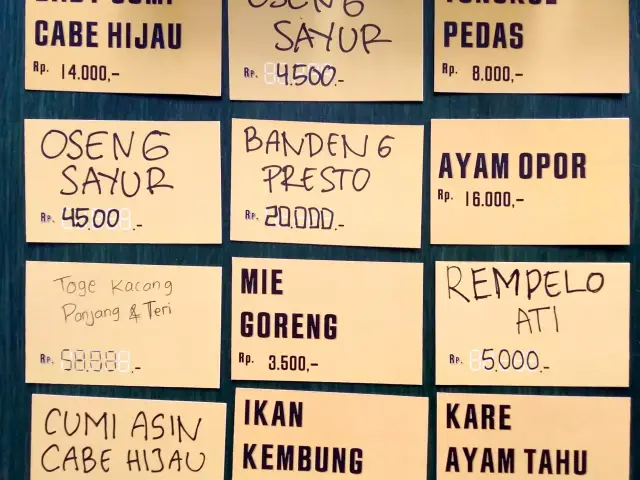 CABE HIJAU
Rp. 14.000,-
OSENG
SAYUR
Rp. 4.500.-
PEDAS
Rp. 8.000,-
OSENG
SAYUR
Rp. 4500.-
BANDENG
PRESTO
Rp. 20.000.-
AYAM OPOR
Rp. 16.000,-
Toge Kacang
Panjang & Teri
Rp.
MIE
GORENG
Rp. 3.500,-
REMPELO
ATI
Rp. 5.000.-
CUMI ASIN
CABE HIJAU
IKAN
KEMBUNG
KARE
AYAM TAHU